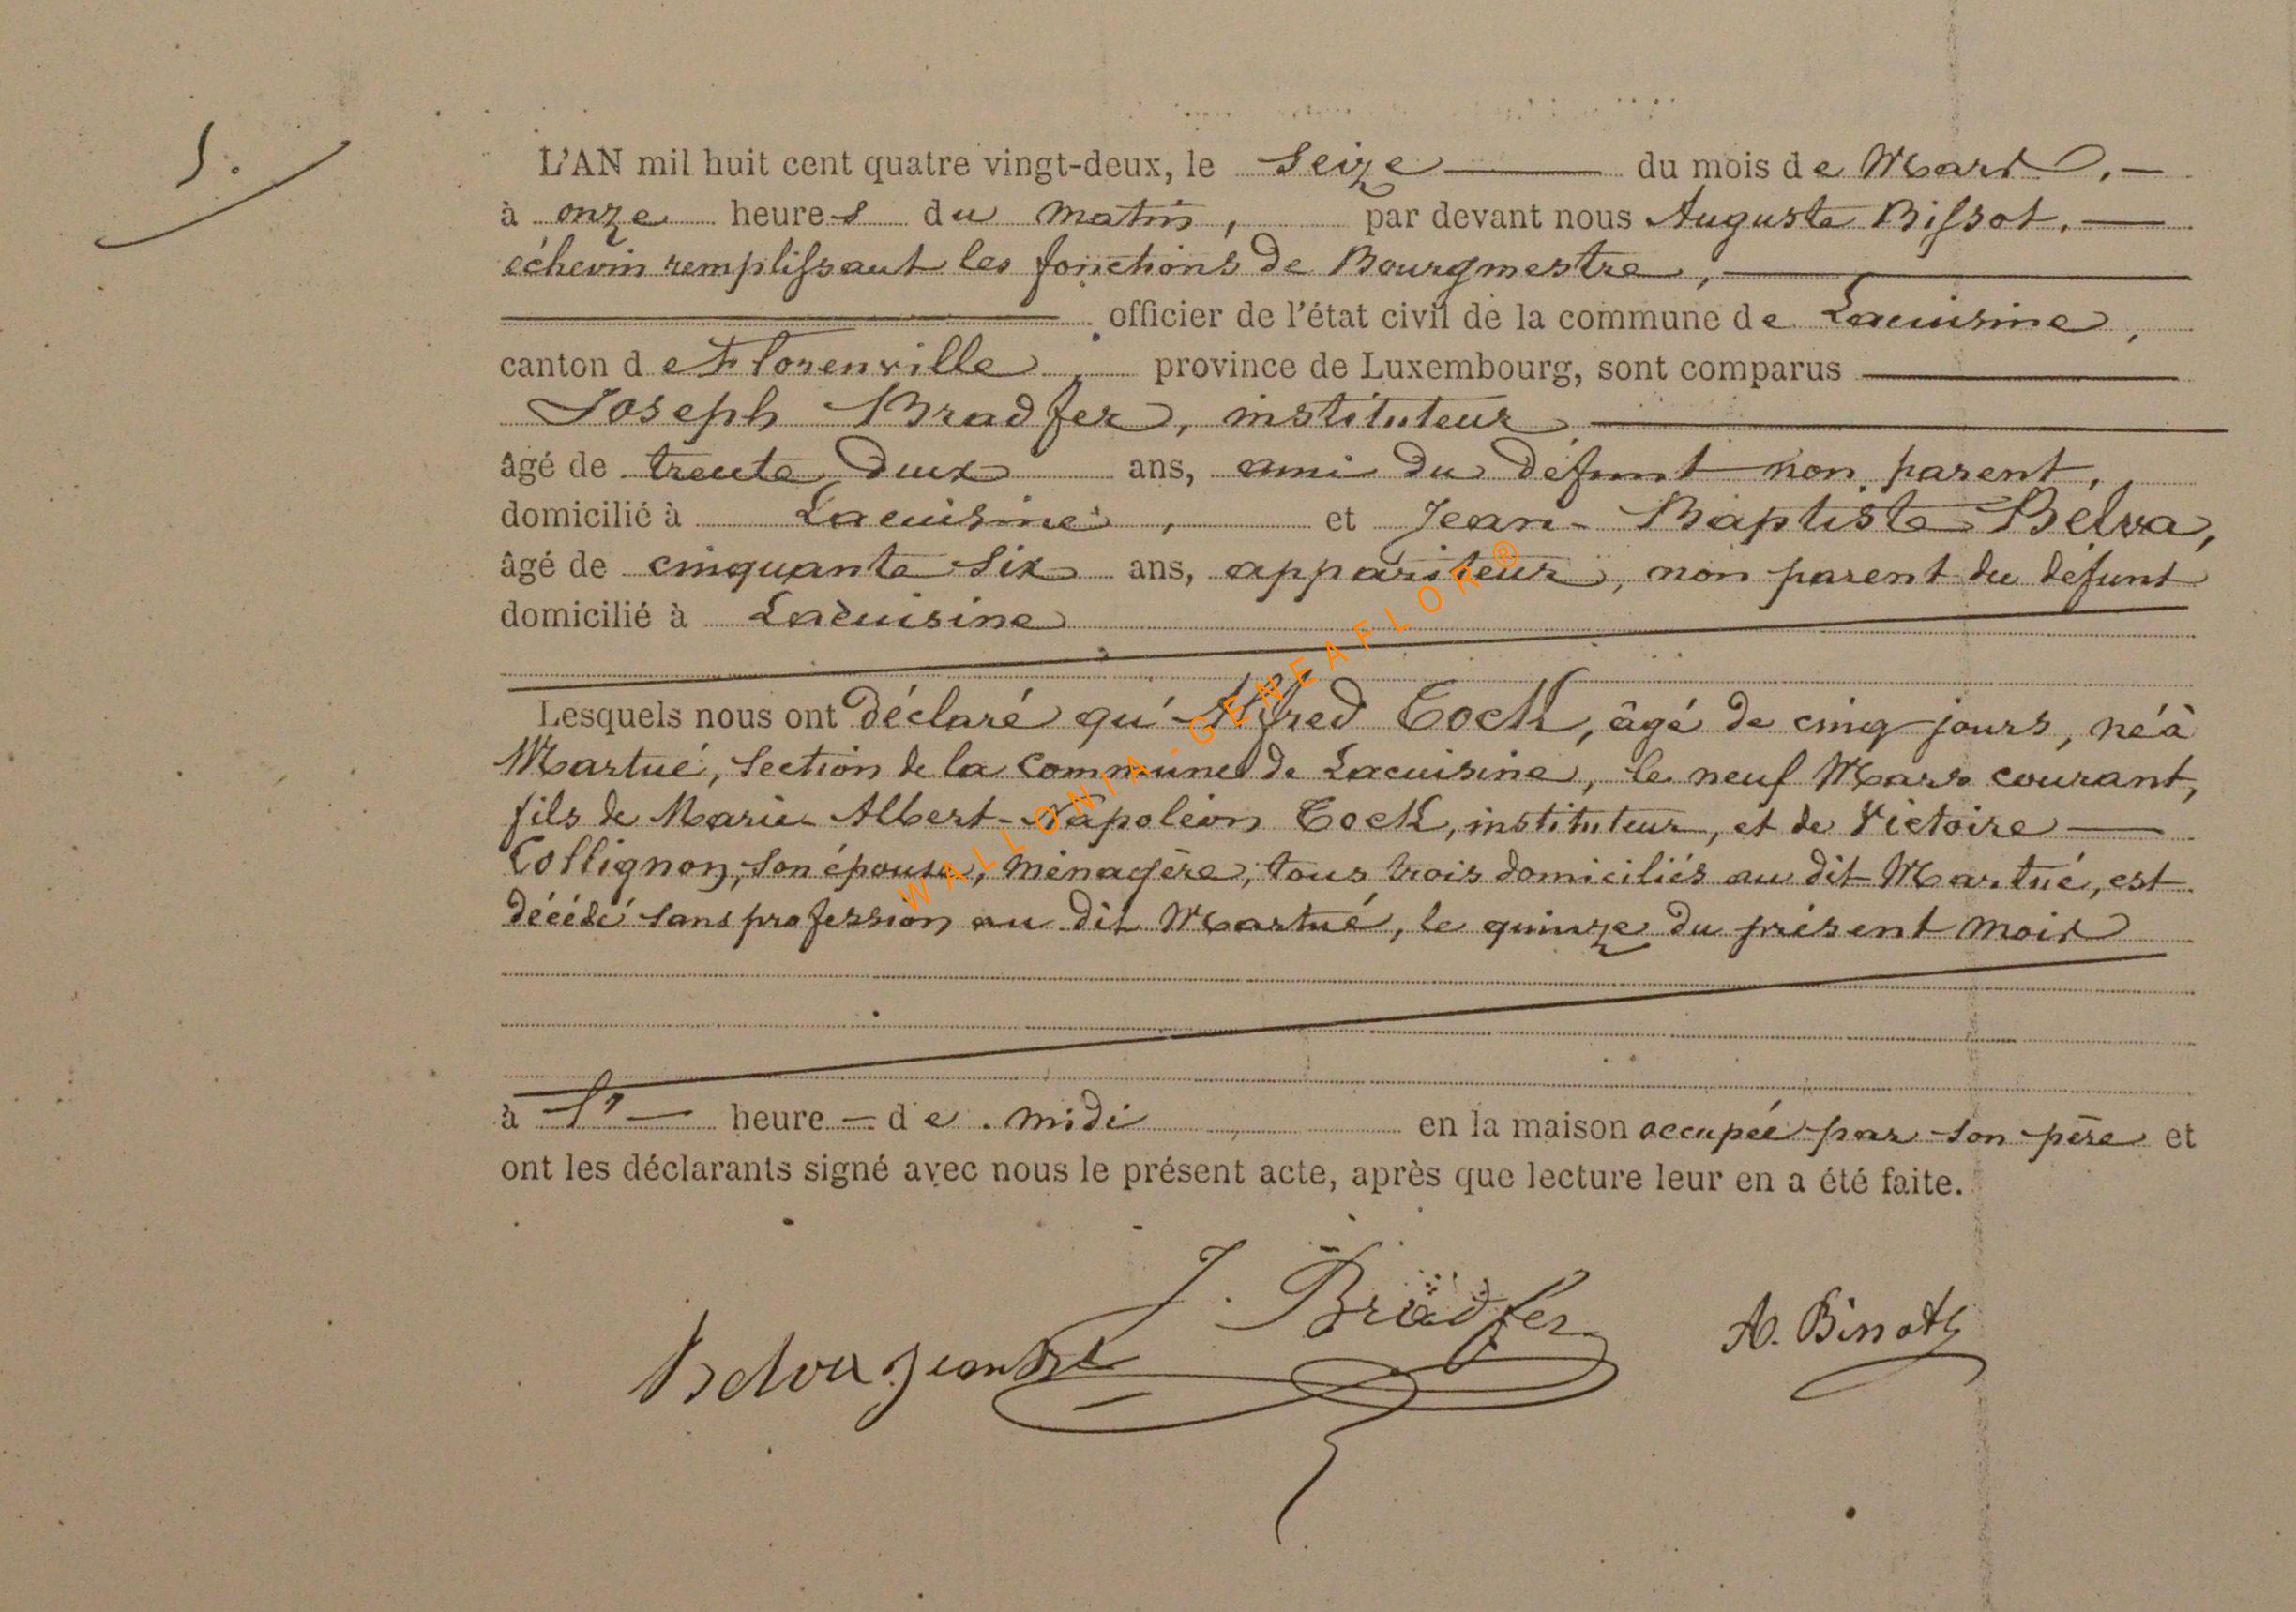 5.
L'AN mil huit cent quatre vingt-deux, le Seize du mois de Mars,
à onze heures du matin, par devant nous Auguste Bissot,
échevin remplissant les fonctions de Bourgmestre,
officier de l'état civil de la commune de Lacuisine,
canton de Florenville, province de Luxembourg, sont comparus
Joseph Bradfer, instituteur
âgé de trente deux ans, ami du défunt non parent,
domicilié à Lacuisine, et Jean-Baptiste Belva,
âgé de cinquante six ans, appariteur, non parent du défunt
domicilié à Lacuisine
Lesquels nous ont déclaré qu'Alfred Cock, âgé de cinq jours, né à
Martué, section de la commune de Lacuisine, le neuf Mars courant,
fils de Marie Albert-Napoléon Cock, instituteur, et de Victoire
Collignon, son épouse, ménagère, tous trois domiciliés au dit Martué, est
décédé sans profession au dit Martué, le quinze du présent mois
à l' heure de midi en la maison occupée par son père et
ont les déclarants signé avec nous le présent acte, après que lecture leur en a été faite.
J. Bradfer
Belva Jean Bte
WALLONIA-GENEAFLOR®